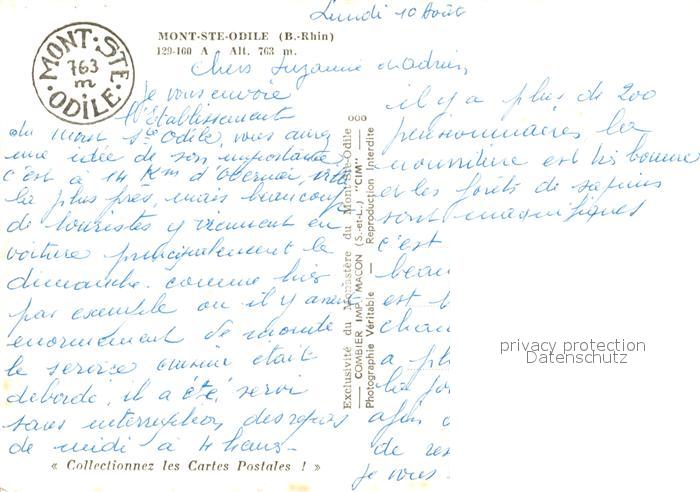 Lundi 10 Août
MONT-STE-ODILE (B.-Rhin)
129-160 A Alt. 763 m.
MONT-STE-ODILE
763
m
Chers Suzanne Adrien,
Je vous envoie
l'Etablissement
du mont Ste Odile, vous aurez
une idée de son importance
c'est à 14 Km d'Obernai, ville
la plus près, mais beaucoup
de touristes y viennent en
voiture principalement le
dimanche. comme hier
par exemple ou il y avait
enormement de monde
le service cuisine était
debordé, il a été servi
sans interruption des repas
de midi à 4 heures-
« Collectionnez les Cartes Postales ! »
Exclusivité du Monastère du Mont-Ste-Odile
COMBIER IMP. MACON (S.-et-L.) "CIM"
Photographie Véritable — Reproduction Interdite
il y a plus de 200
pensionnaires la
nourriture est très bonne
et les forêts de sapins
sont magnifiques
c'est
beau
est
a
la
afin
de
je vous
privacy protection
Datenschutz